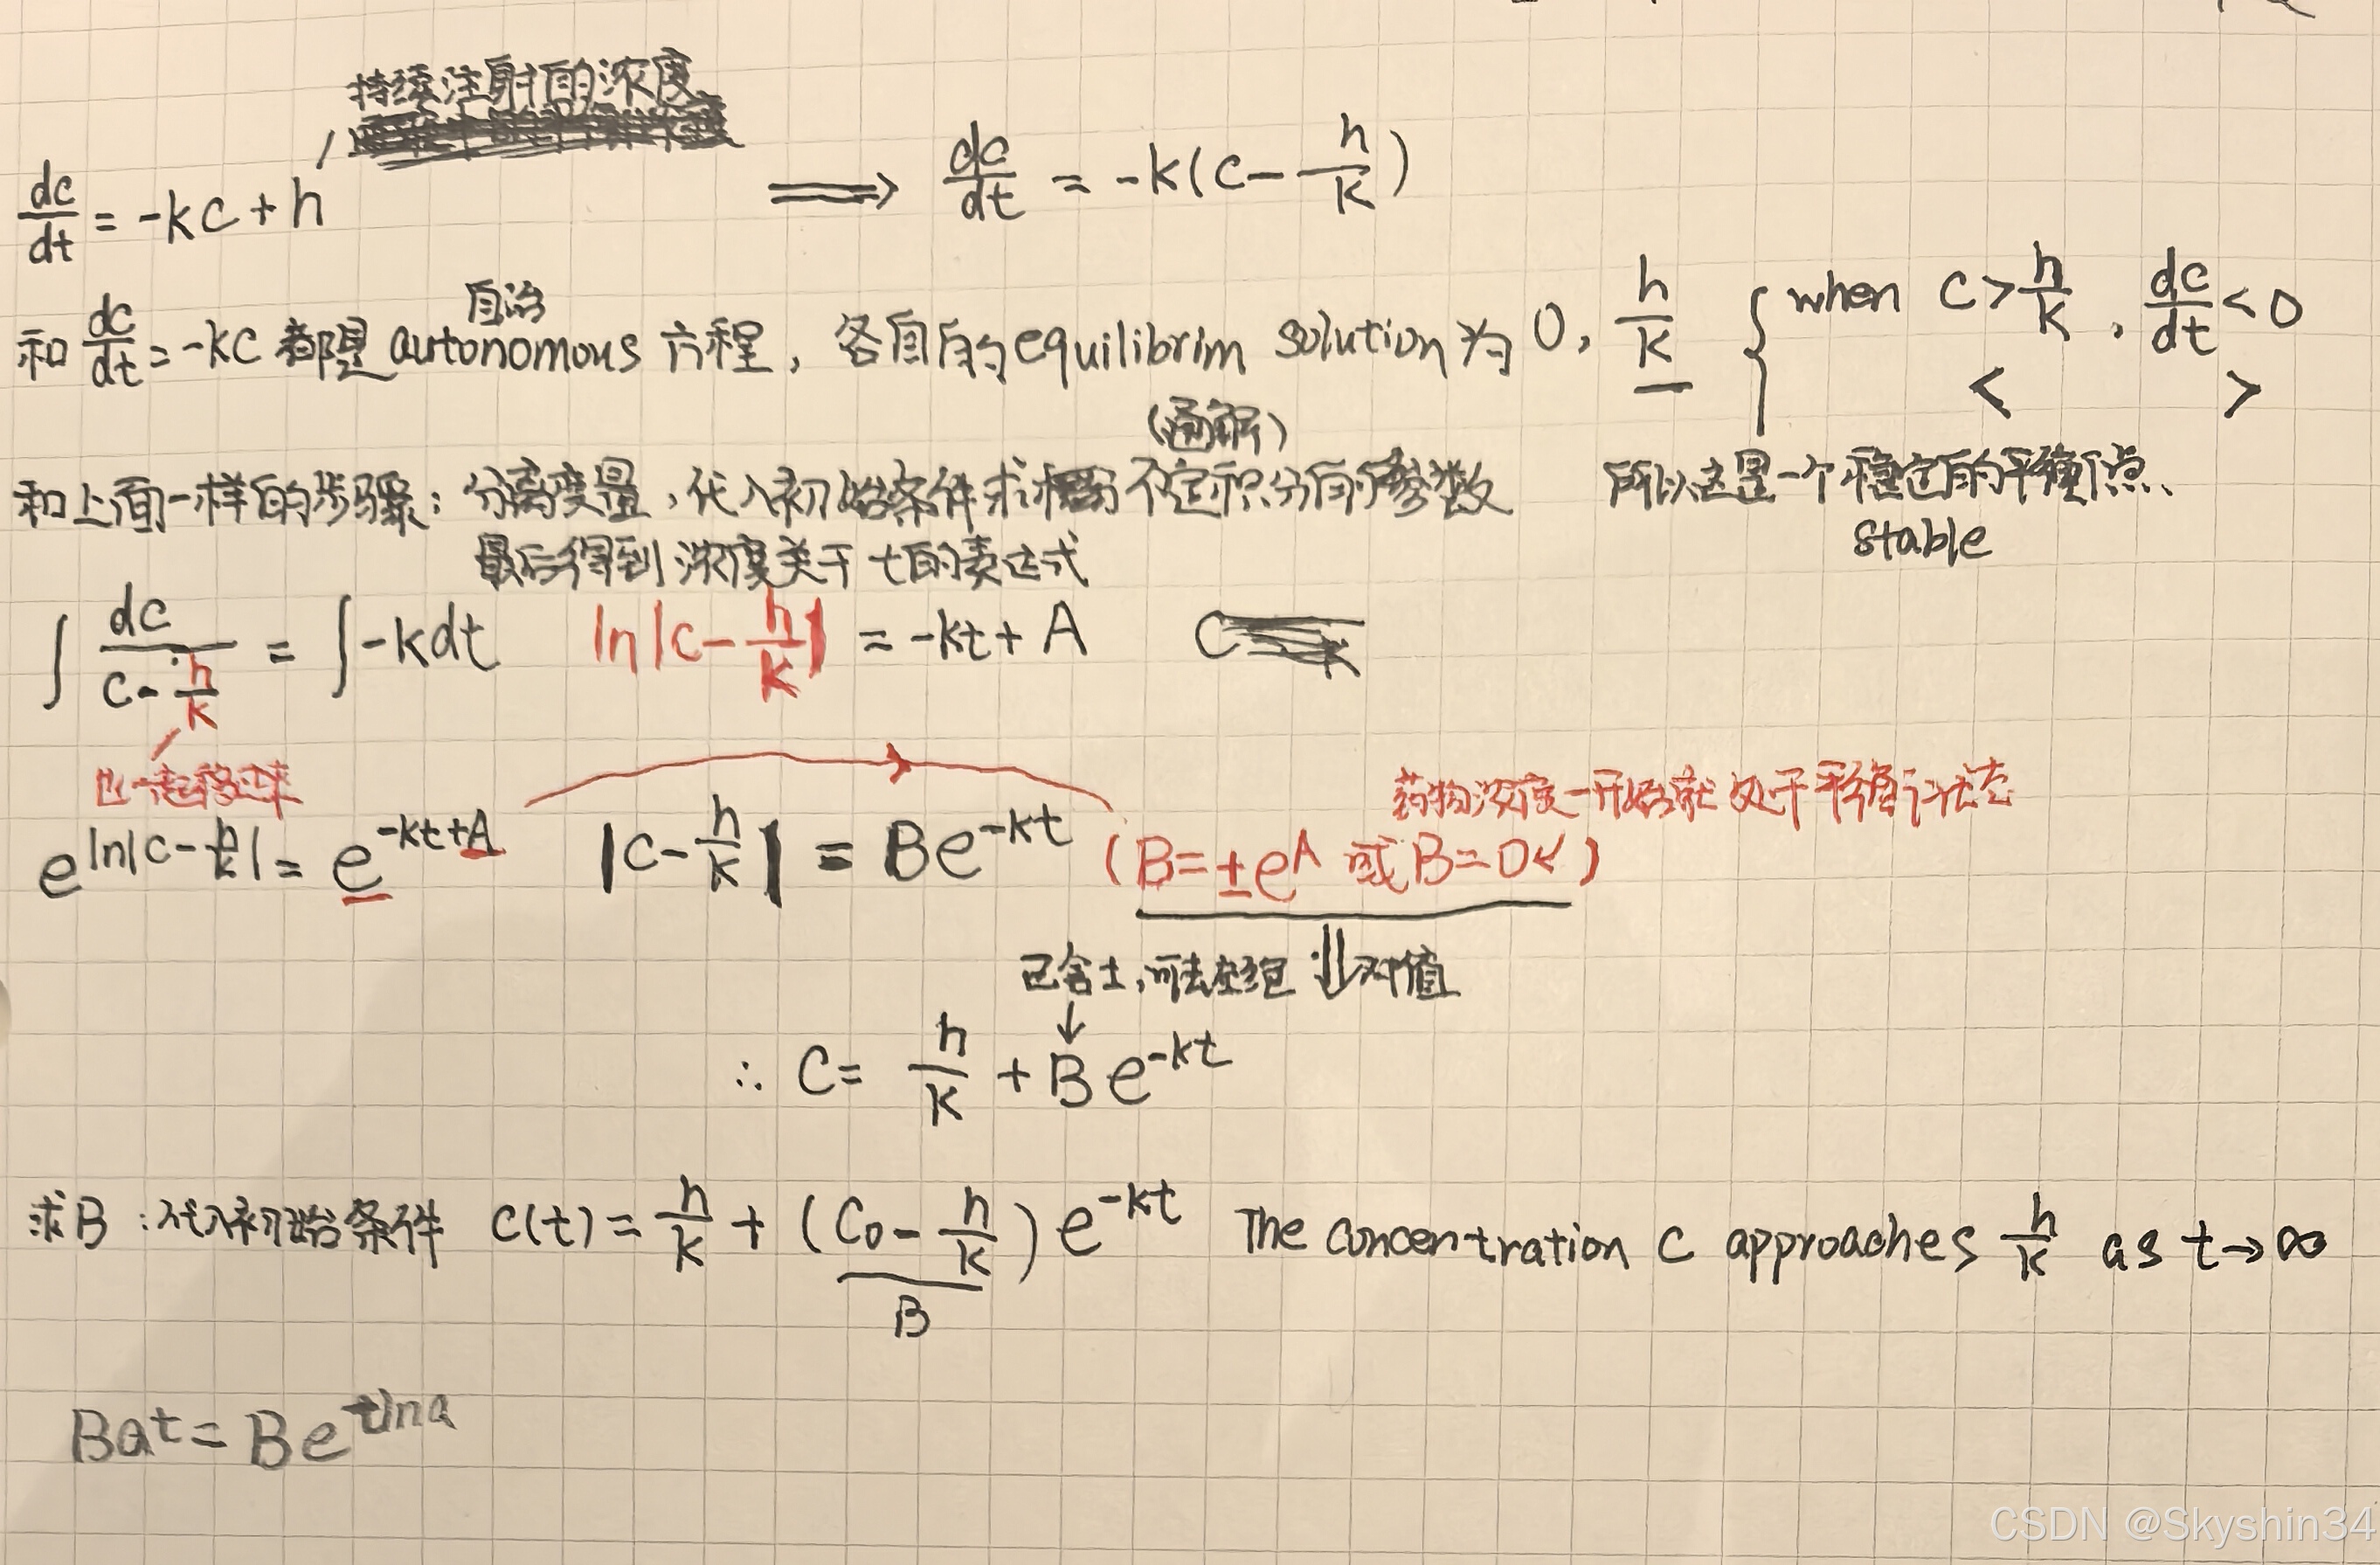 持续注射的浓度
dc/dt = -kc + h ⟹ dc/dt = -k(c - h/k)
自治
和 dc/dt = -kc 都是 autonomous 方程, 各自的 equilibrim solution 为 0, h/k { when c > h/k, dc/dt < 0
< >
(通解)
和上面一样的步骤: 分离变量, 代入初始条件求 不定积分的参数 所以这是一个稳定的平衡点
最后得到浓度关于 t 的表达式 stable
∫ dc/(c - h/k) = ∫ -k dt ln|c - h/k| = -kt + A C
也一起移过来
药物浓度一开始就处于平衡状态
e^(ln|c - h/k|) = e^(-kt+A) |c - h/k| = Be^(-kt) (B = ±e^A 或 B = 0)
已含±, 可去掉绝对值
∴ C = h/k + Be^(-kt)
求B: 代入初始条件 c(t) = h/k + (C₀ - h/k) e^(-kt) The concentration c approaches h/k as t → ∞
B
Ba^t = Be^(t ln a)
CSDN @Skyshin34